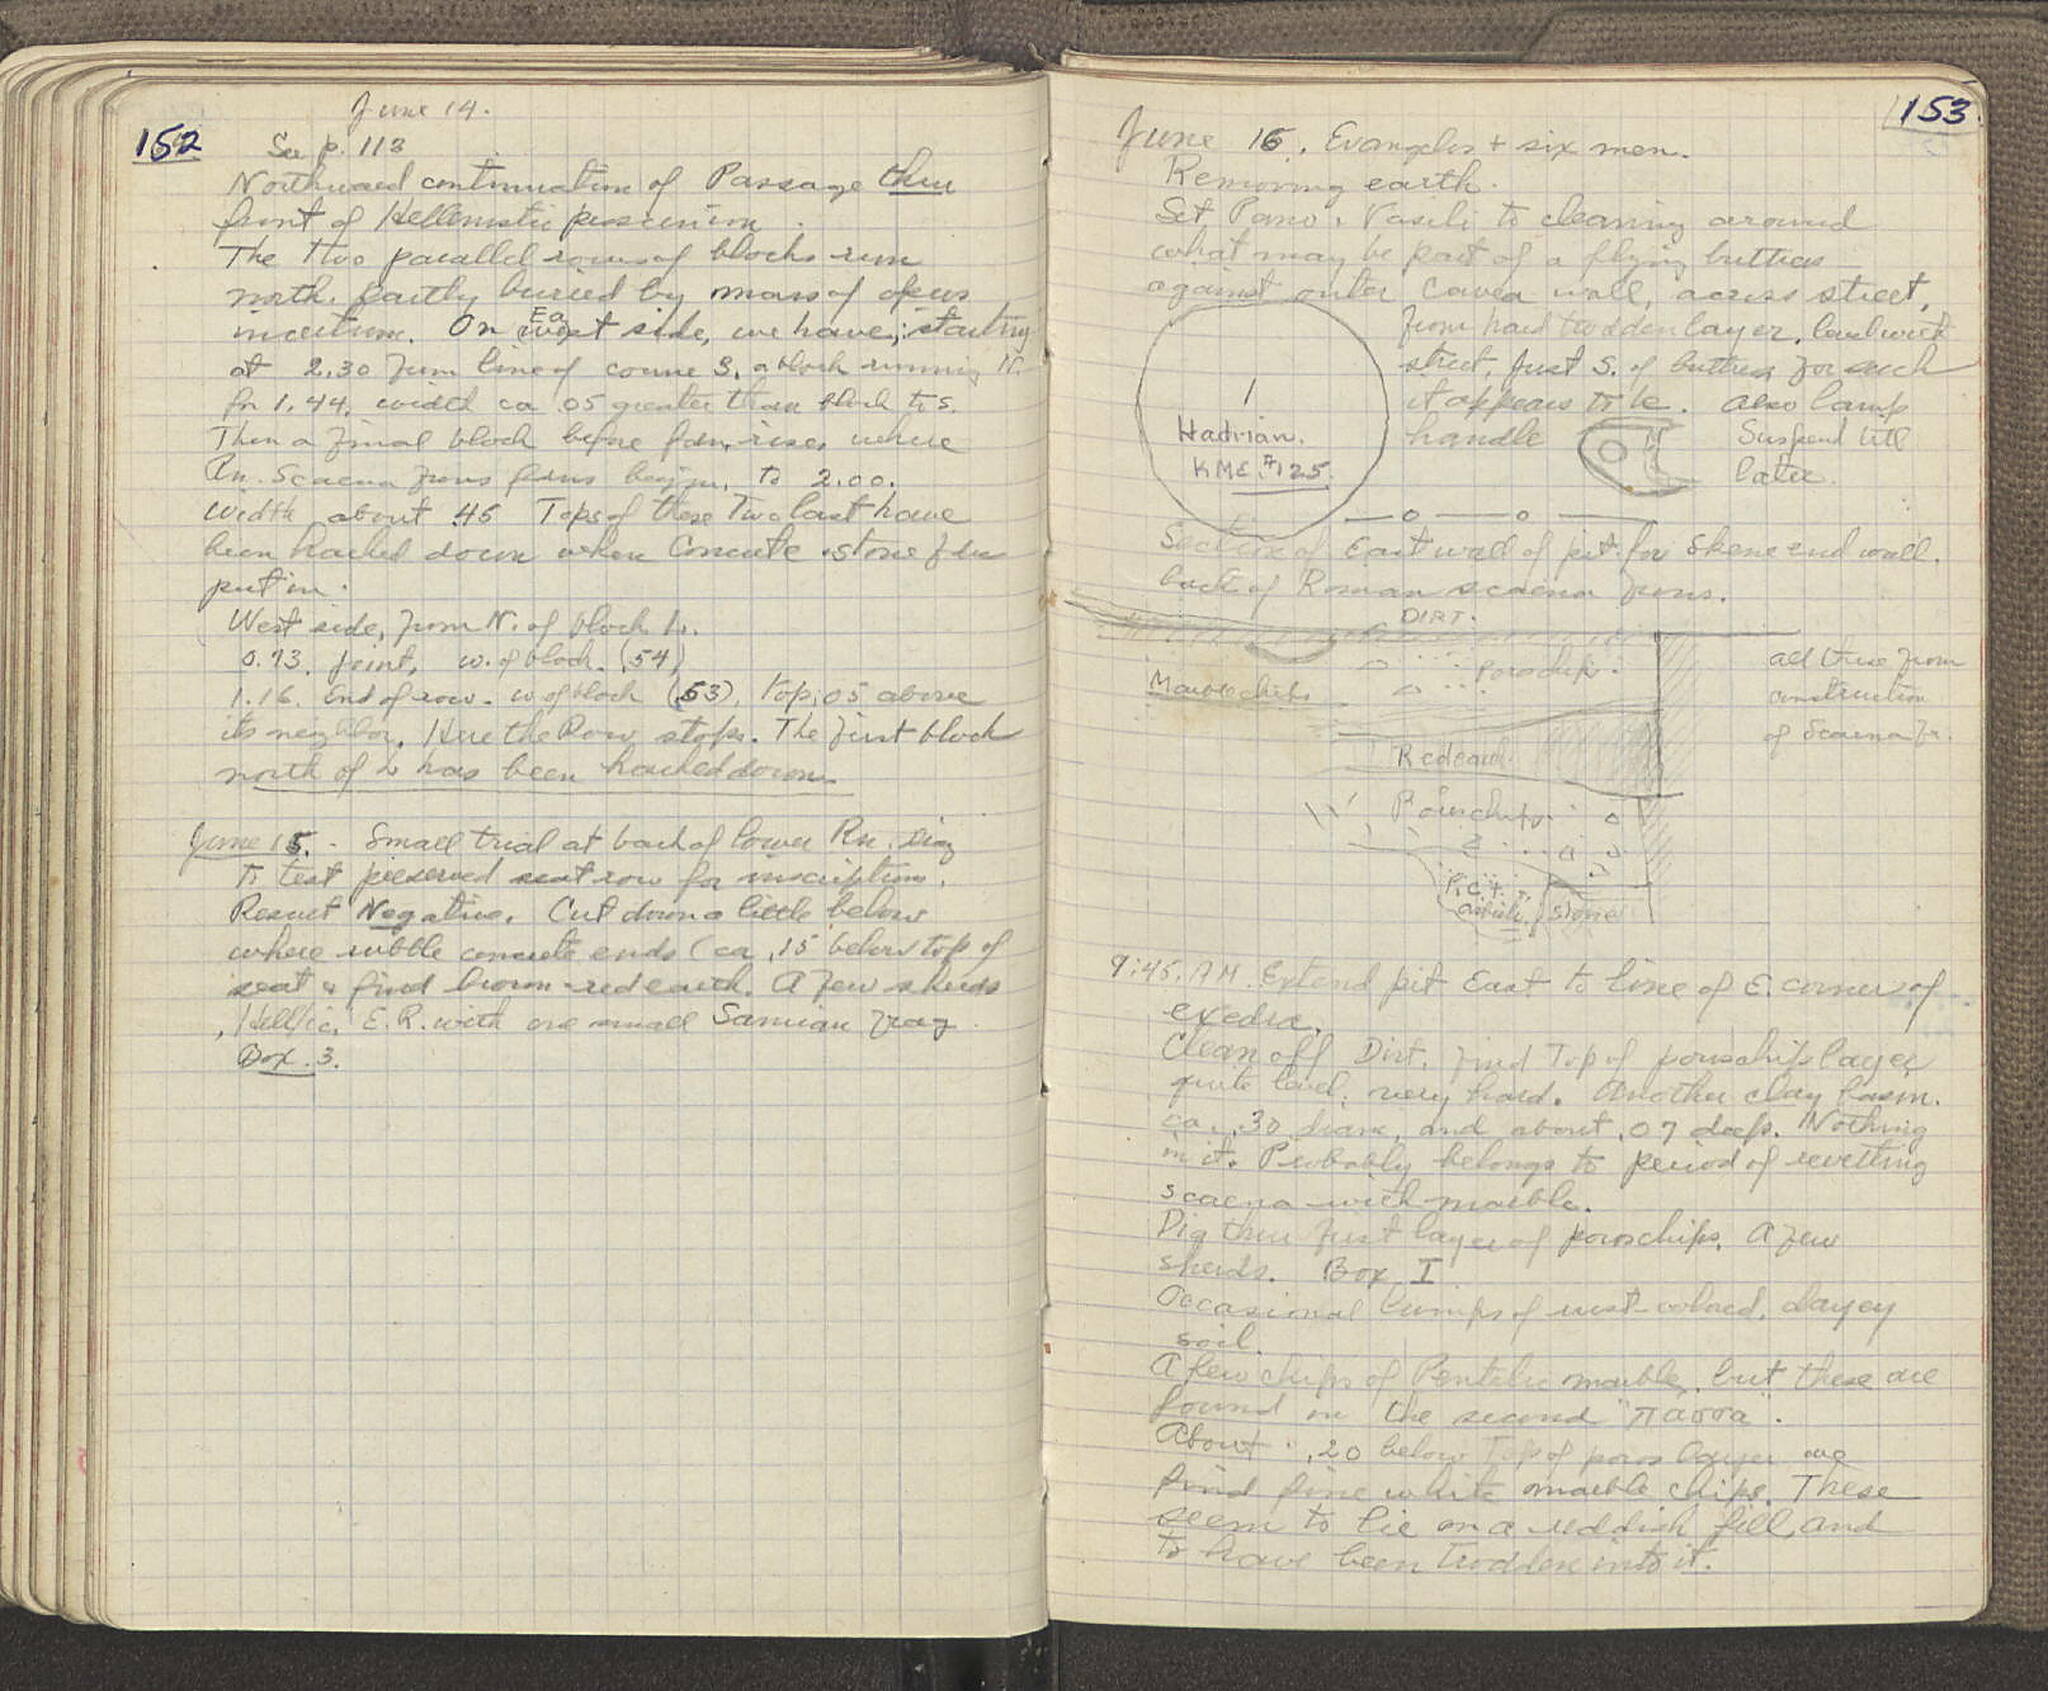 152
June 14.
See p. 113
Northward continuation of Passage thru
front of Hellenistic proscenium.
The two parallel rows of blocks run
north, partly buried by mass of opus
incertum. On East side, we have, starting
at 2.30 from line of course 3, a block running N.
for 1.44, width ca .05 greater than block to S.
Then a final block before foun. rises, where
Rn. Scaena frons founs begin, to 2.00.
Width about .45 Tops of these two last have
been hacked down when concrete & stone fdn
put in.
West side, from N. of block
0.73. joint, w. of block. (.54)
1.16. End of row. w of block (.53), top .05 above
its neighbor. Here the Row stops. The first block
north of has been hacked down.
June 15. - Small trial at back of lower Rn.
to test preserved seat row for inscriptions.
Result Negative. Cut down a little below
where rubble concrete ends (ca .15 below top of
seat & find brown-red earth. A few sherds
Hell'ic, E.R. with one small Samian frag.
Box 3.
153
June 16. Evangelos + six men.
Removing earth.
Set Pano. & Vasili to cleaning around
what may be part of a flying buttress
against outer cavea wall, across street,
from hard trodden layer,
street, just S. of buttress for such
it appears to be. Also lamp
handle
Suspend till
later.
1
Hadrian.
KME. #125.
Section of East wall of pit for Skene end wall.
back of Roman scaena frons.
DIRT.
Poros chips.
Marble chips
all these from
construction
of Scaena fr.
Red earth
Poros chips
P.C. +
stone
9:45. AM. Extend pit East to line of E. corner of
exedra.
Clean off Dirt. find Top of poros chip layer,
quite level, very hard. Another clay basin.
ca. .30 diam, and about .07 deep. Nothing
in it. Probably belongs to period of revetting
scaena with marble.
Dig thru first layer of poros chips. A few
sherds. Box I
Occasional lumps of rust-colored, clayey
soil.
A few chips of Pentelic marble, but these are
found in the second "πάστα".
About .20 below Top of poros layer we
find fine white marble chips. These
seem to lie on a reddish fill, and
to have been trodden into it.